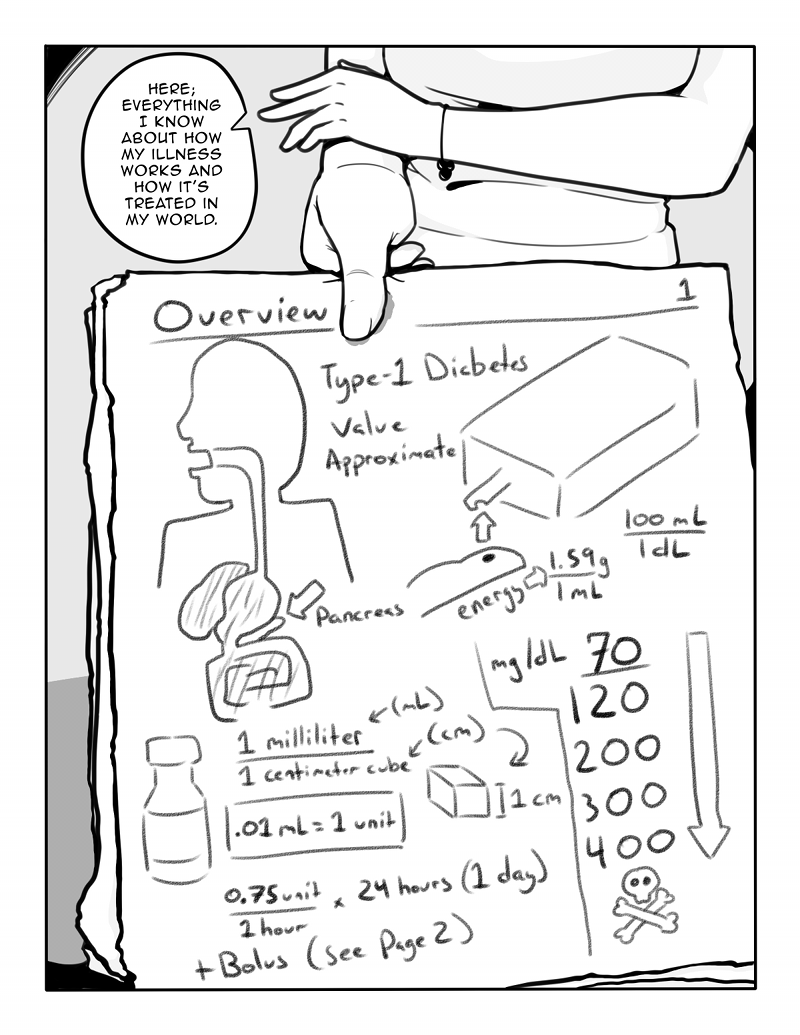 HERE;
EVERYTHING
I KNOW
ABOUT HOW
MY ILLNESS
WORKS AND
HOW IT'S
TREATED IN
MY WORLD.
Overview
1
Type-1 Diabetes
Value
Approximate
100 mL
1 dL
1.59g
1 mL
energy
Pancreas
mg/dL
70
120
200
300
400
(mL)
1 milliliter
(cm)
1 centimeter cube
1 cm
.01 mL = 1 unit
0.75 unit
1 hour
x 24 hours (1 day)
+ Bolus (see Page 2)